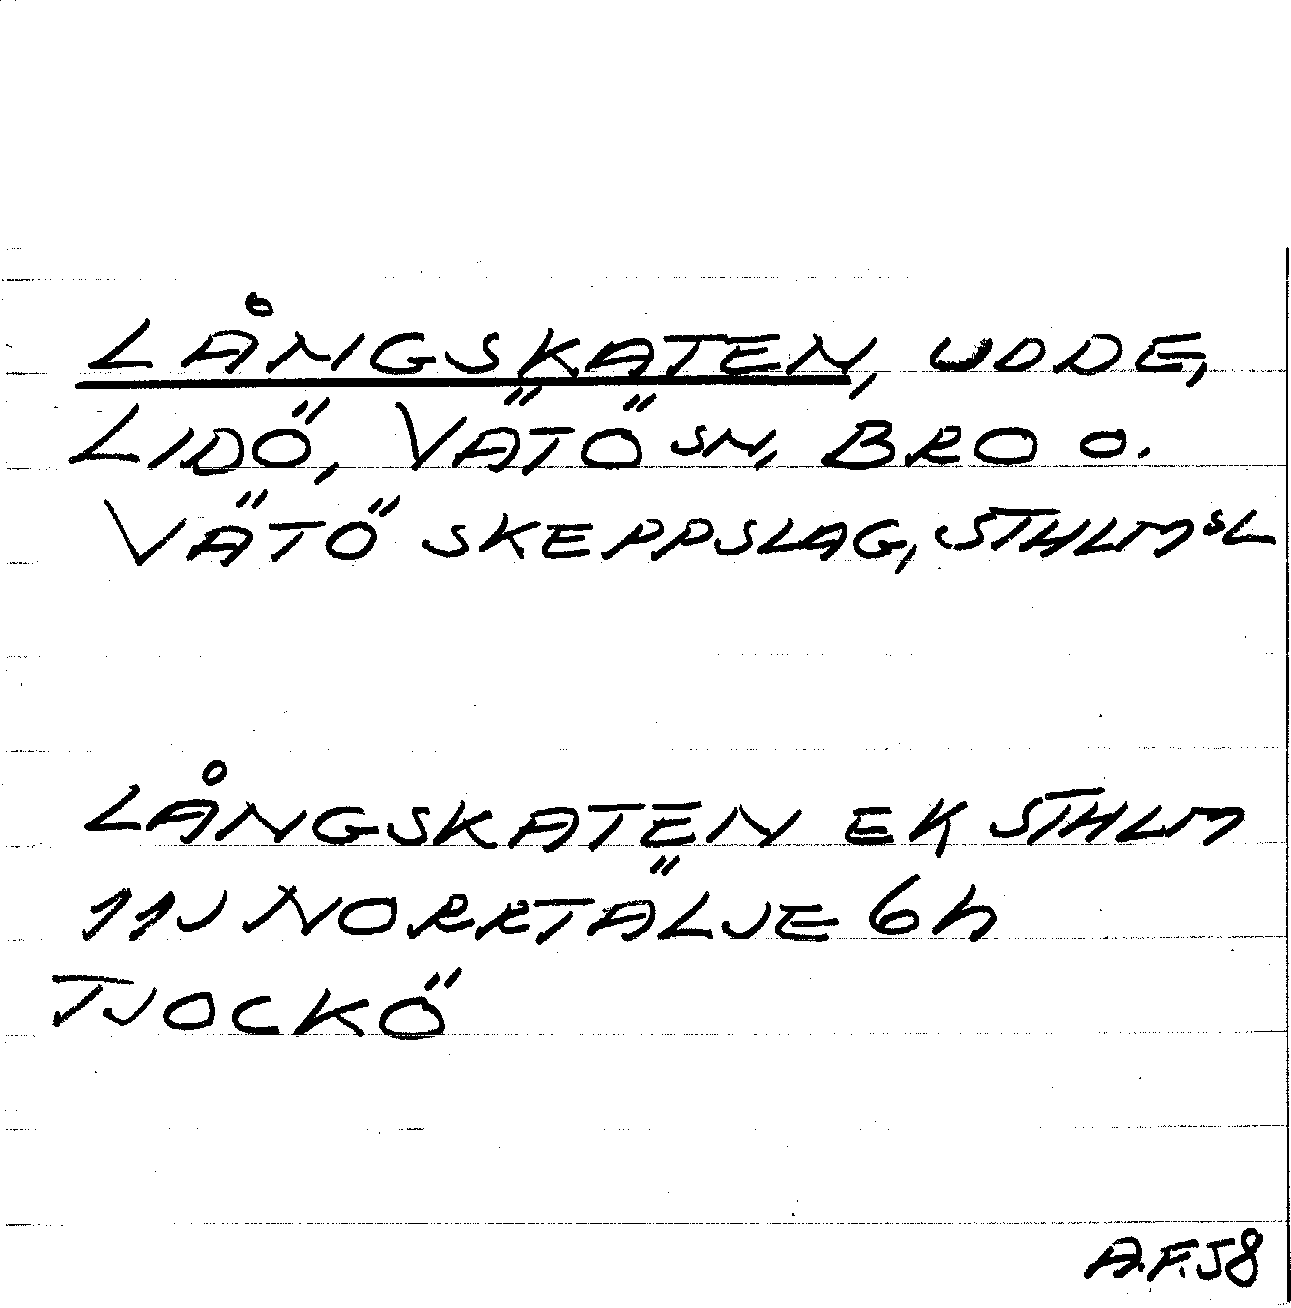 LÅNGSKATEN, UDDE,
LIDÖ, VÄTÖ SN, BRO O.
VÄTÖ SKEPPSLAG, STHLMSL
LÅNGSKATEN EK STHLM
11J NORRTÄLJE 6h
TJOCKÖ
A.F.58